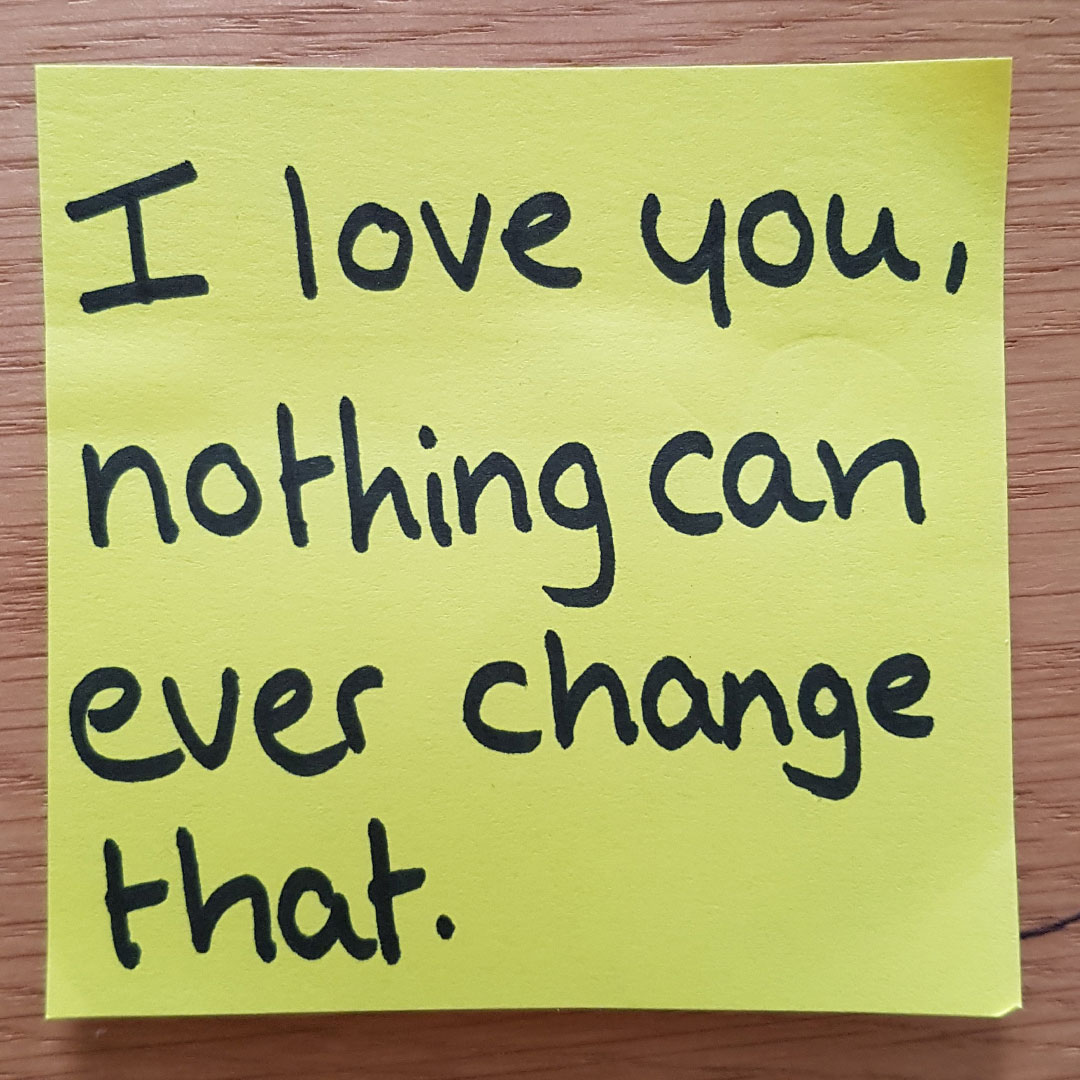 I love you,
nothing can
ever change
that.